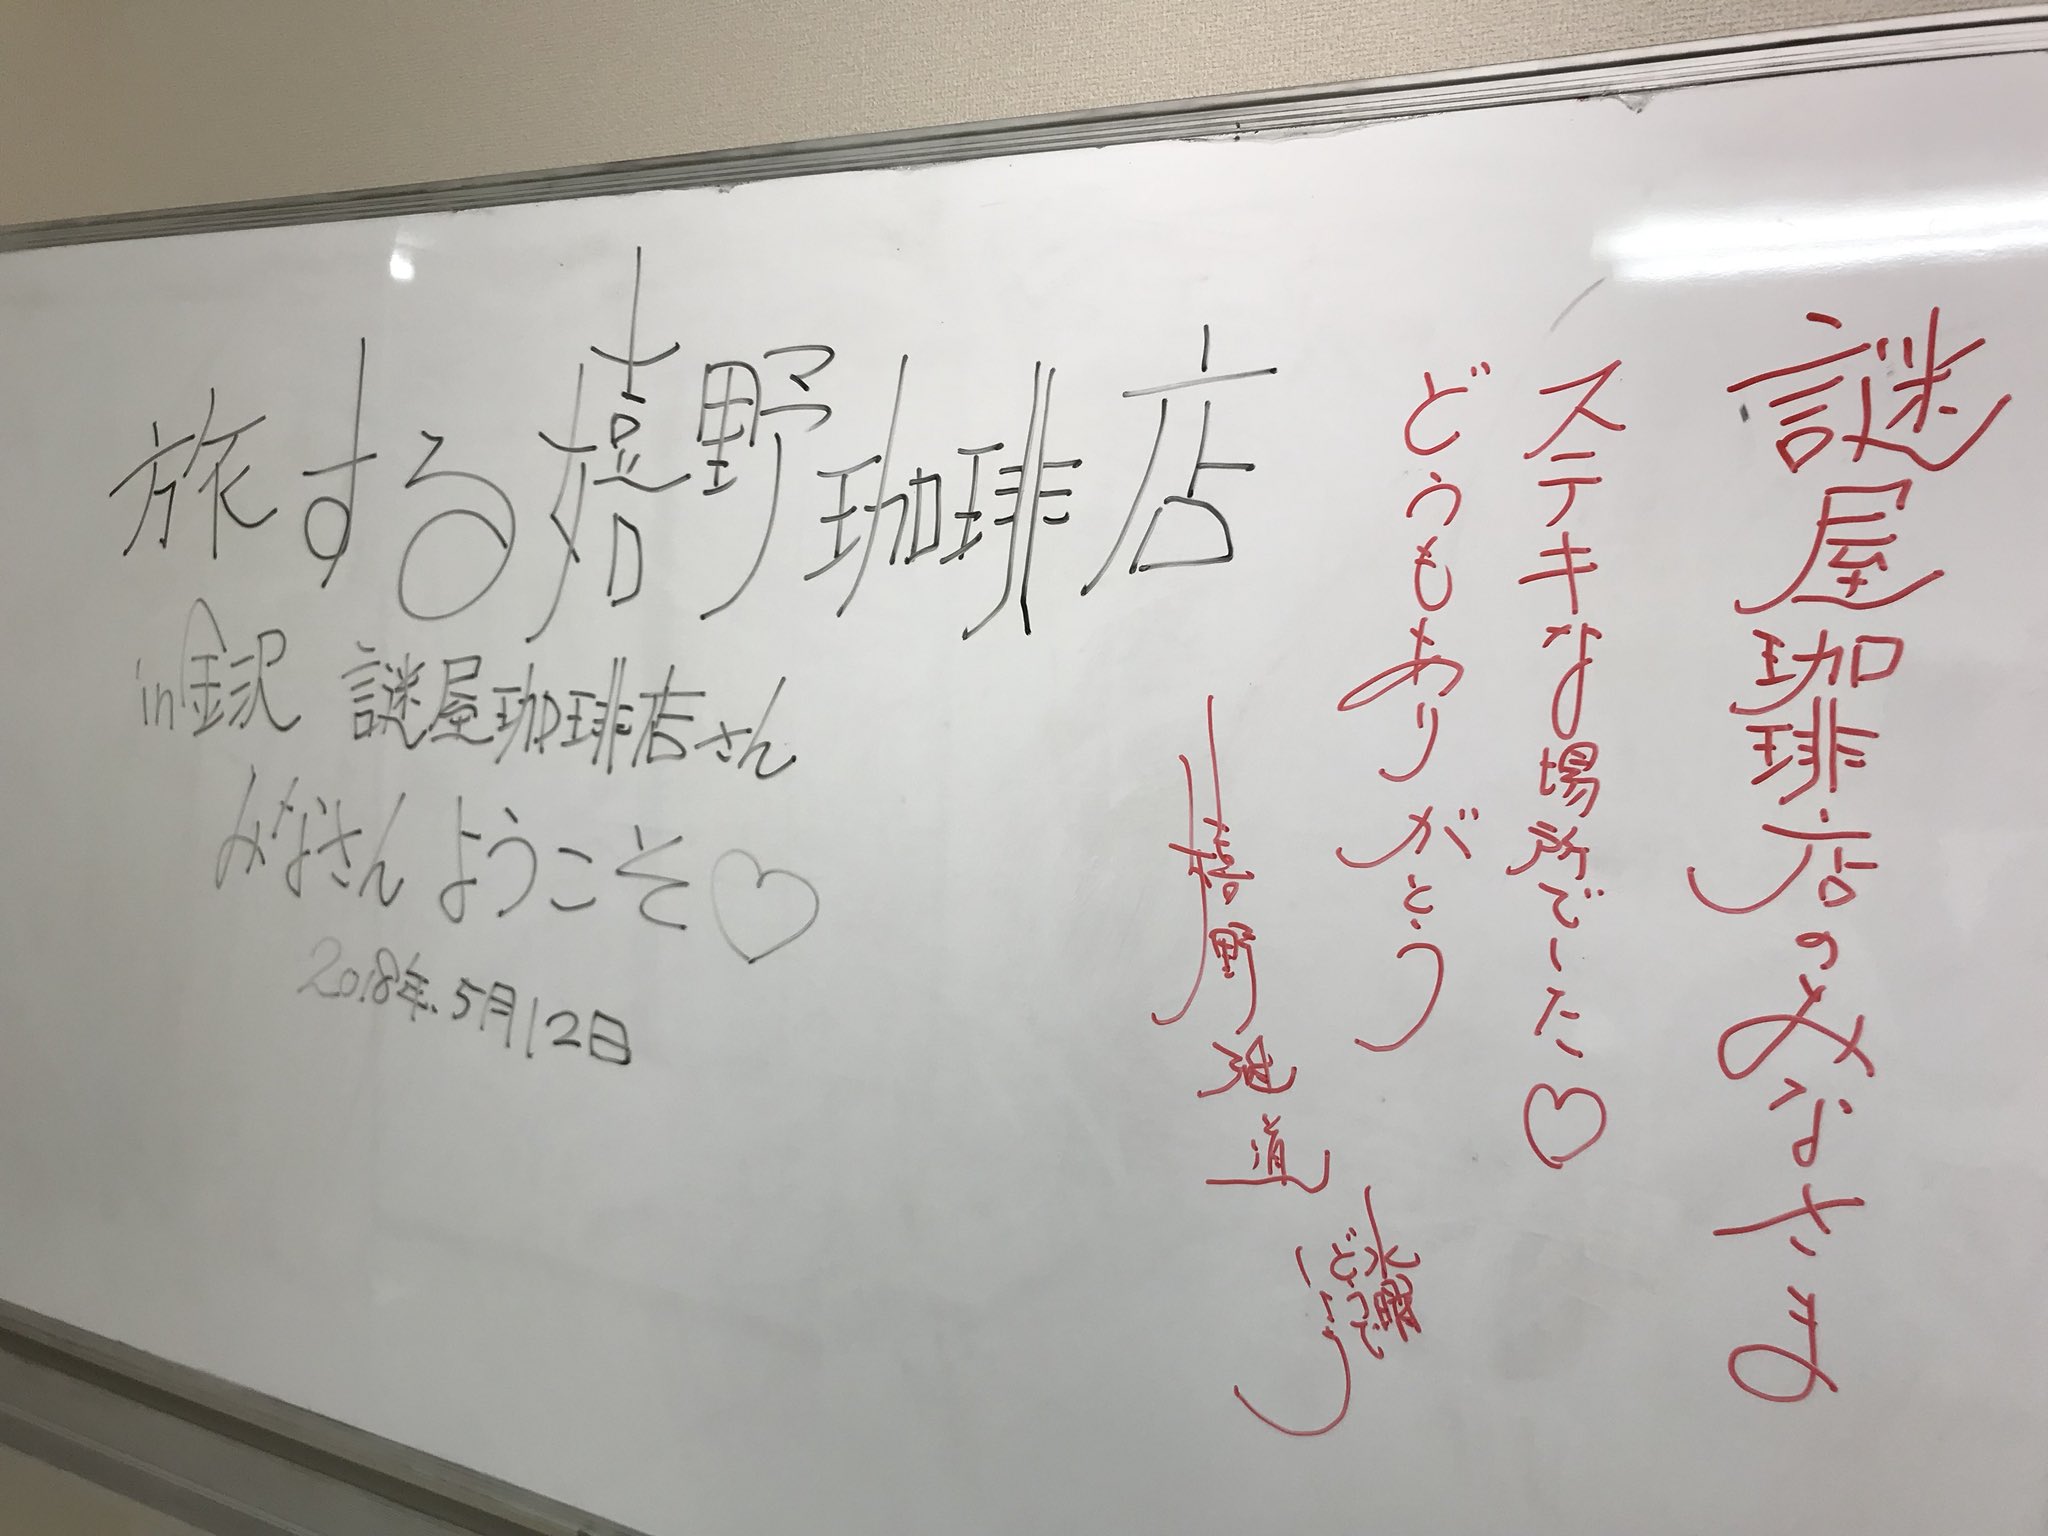 旅する嬉野珈琲店
in金沢 謎屋珈琲店さん
みなさんようこそ♡
2018年.5月12日
謎屋珈琲店のみなさま
ステキな場所でした♡
どうもありがとう
嬉野
道
水曜
どうで